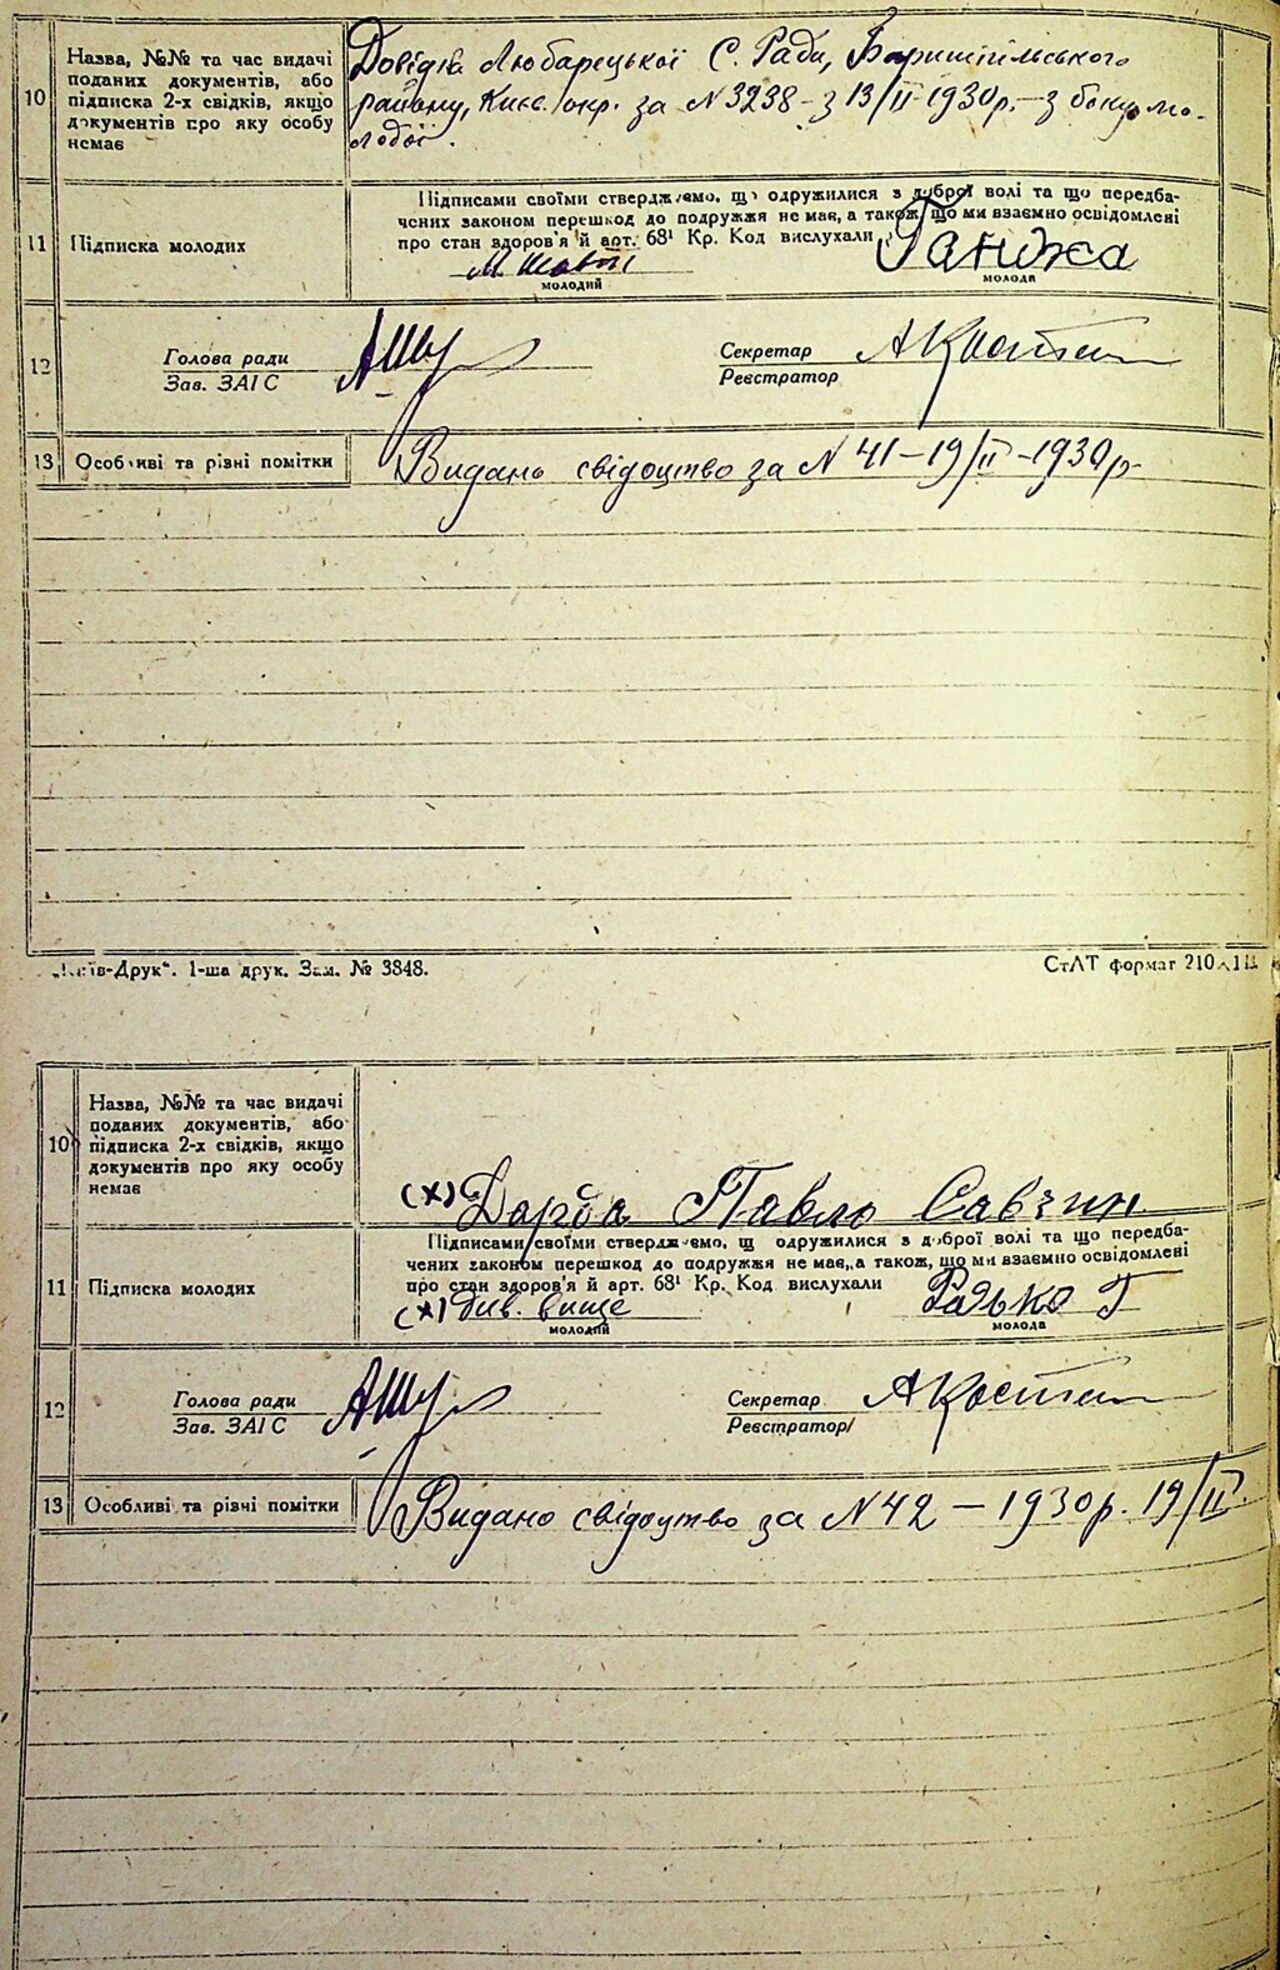 10 Назва, №№ та час видачі
поданих документів, або
підписка 2-х свідків, якщо
документів про яку особу
немає
Довідка Любарецької С. Ради, Бориспільського
району, Київ. окр. за N 3238 – з 13/II-1930р. – з боку мо-
лодої.
11 Підписка молодих
Підписами своїми стверджуємо, що одружилися з доброї волі та що передба-
чених законом перешкод до подружжя не має, а також, що ми взаємно освідомлені
про стан здоров'я й арт. 68¹ Кр. Код вислухали
Ганжа
молодий молода
12 Голова ради Секретар А Кости
Зав. ЗАГС Реєстратор
13 Особливі та різні помітки Видано свідоцтво за N 41 – 19/II – 1930р
„Київ-Друк“. 1-ша друк. Зам. № 3848. СтАТ формат 210
10 Назва, №№ та час видачі
поданих документів, або
підписка 2-х свідків, якщо
документів про яку особу
немає
(х) Дарба Павло Еавзин
Підписами своїми стверджуємо, що одружилися з доброї волі та що передба-
чених законом перешкод до подружжя не має, а також, що ми взаємно освідомлені
про стан здоров'я й арт. 68¹ Кр. Код вислухали
11 Підписка молодих (х) див. вище Радько Г
молодий молода
12 Голова ради Секретар А Кости
Зав. ЗАГС Реєстратор/
13 Особливі та різні помітки Видано свідоцтво за N 42 – 1930р. 19/II.